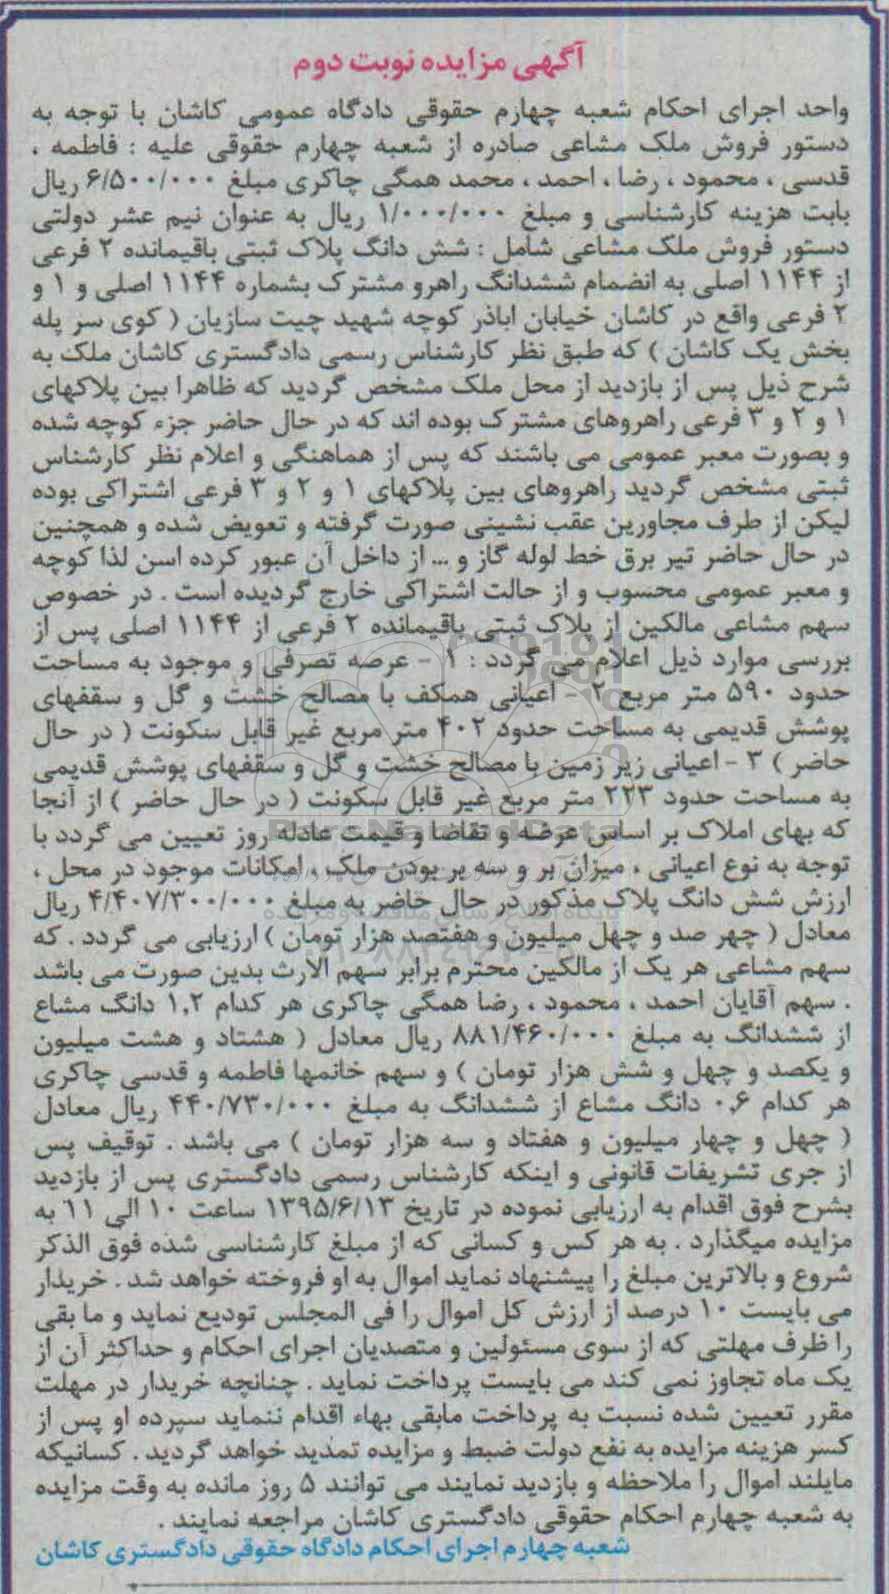 آگهی مزایده نوبت دوم
واحد اجرای احکام شعبه چهارم حقوقی دادگاه عمومی کاشان با توجه به
دستور فروش ملک مشاعی صادره از شعبه چهارم حقوقی علیه : فاطمه ،
قدسی ، محمود ، رضا ، احمد ، محمد همگی چاکری مبلغ ۶/۵۰۰/۰۰۰ ریال
بابت هزینه کارشناسی و مبلغ ۱/۰۰۰/۰۰۰ ریال به عنوان نیم عشر دولتی
دستور فروش ملک مشاعی شامل : شش دانگ پلاک ثبتی باقیمانده ۲ فرعی
از ۱۱۴۴ اصلی به انضمام ششدانگ راهرو مشترک بشماره ۱۱۴۴ اصلی و ۱ و
۲ فرعی واقع در کاشان خیابان اباذر کوچه شهید چیت سازیان ( کوی سر پله
بخش یک کاشان ) که طبق نظر کارشناس رسمی دادگستری کاشان ملک به
شرح ذیل پس از بازدید از محل ملک مشخص گردید که ظاهرا بین پلاکهای
۱ و ۲ و ۳ فرعی راهروهای مشترک بوده اند که در حال حاضر جزء کوچه شده
و بصورت معبر عمومی می باشند که پس از هماهنگی و اعلام نظر کارشناس
ثبتی مشخص گردید راهروهای بین پلاکهای ۱ و ۲ و ۳ فرعی اشتراکی بوده
لیکن از طرف مجاورین عقب نشینی صورت گرفته و تعویض شده و همچنین
در حال حاضر تیر برق خط لوله گاز و ... از داخل آن عبور کرده اسن لذا کوچه
و معبر عمومی محسوب و از حالت اشتراکی خارج گردیده است . در خصوص
سهم مشاعی مالکین از پلاک ثبتی باقیمانده ۲ فرعی از ۱۱۴۴ اصلی پس از
بررسی موارد ذیل اعلام می گردد : ۱ - عرصه تصرفی و موجود به مساحت
حدود ۵۹۰ متر مربع ۲ - اعیانی همکف با مصالح خشت و گل و سقفهای
پوشش قدیمی به مساحت حدود ۴۰۲ متر مربع غیر قابل سکونت ( در حال
حاضر ) ۳ - اعیانی زیر زمین با مصالح خشت و گل و سقفهای پوشش قدیمی
به مساحت حدود ۲۲۳ متر مربع غیر قابل سکونت ( در حال حاضر ) از آنجا
که بهای املاک بر اساس عرضه و تقاضا و قیمت عادله روز تعیین می گردد با
توجه به نوع اعیانی ، میزان بر و سه بر بودن ملک ، امکانات موجود در محل ،
ارزش شش دانگ پلاک مذکور در حال حاضر به مبلغ ۴/۴۰۷/۳۰۰/۰۰۰ ریال
معادل ( چهر صد و چهل میلیون و هفتصد هزار تومان ) ارزیابی می گردد . که
سهم مشاعی هر یک از مالکین محترم برابر سهم الارث بدین صورت می باشد
. سهم آقایان احمد ، محمود ، رضا همگی چاکری هر کدام ۱٫۲ دانگ مشاع
از ششدانگ به مبلغ ۸۸۱/۴۶۰/۰۰۰ ریال معادل ( هشتاد و هشت میلیون
و یکصد و چهل و شش هزار تومان ) و سهم خانمها فاطمه و قدسی چاکری
هر کدام ۰٫۶ دانگ مشاع از ششدانگ به مبلغ ۴۴۰/۷۳۰/۰۰۰ ریال معادل
( چهل و چهار میلیون و هفتاد و سه هزار تومان ) می باشد . توقیف پس
از جری تشریفات قانونی و اینکه کارشناس رسمی دادگستری پس از بازدید
بشرح فوق اقدام به ارزیابی نموده در تاریخ ۱۳۹۵/۶/۱۳ ساعت ۱۰ الی ۱۱ به
مزایده میگذارد . به هر کس و کسانی که از مبلغ کارشناسی شده فوق الذکر
شروع و بالاترین مبلغ را پیشنهاد نماید اموال به او فروخته خواهد شد . خریدار
می بایست ۱۰ درصد از ارزش کل اموال را فی المجلس تودیع نماید و ما بقی
را ظرف مهلتی که از سوی مسئولین و متصدیان اجرای احکام و حداکثر آن از
یک ماه تجاوز نمی کند می بایست پرداخت نماید . چنانچه خریدار در مهلت
مقرر تعیین شده نسبت به پرداخت مابقی بهاء اقدام ننماید سپرده او پس از
کسر هزینه مزایده به نفع دولت ضبط و مزایده تمدید خواهد گردید . کسانیکه
مایلند اموال را ملاحظه و بازدید نمایند می توانند ۵ روز مانده به وقت مزایده
به شعبه چهارم احکام حقوقی دادگستری کاشان مراجعه نمایند .
شعبه چهارم اجرای احکام دادگاه حقوقی دادگستری کاشان